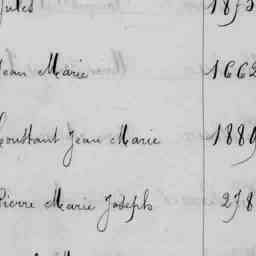 Jules 1875
Jean Marie 1662
Constant Jean Marie 1889
Pierre Marie Joseph 278